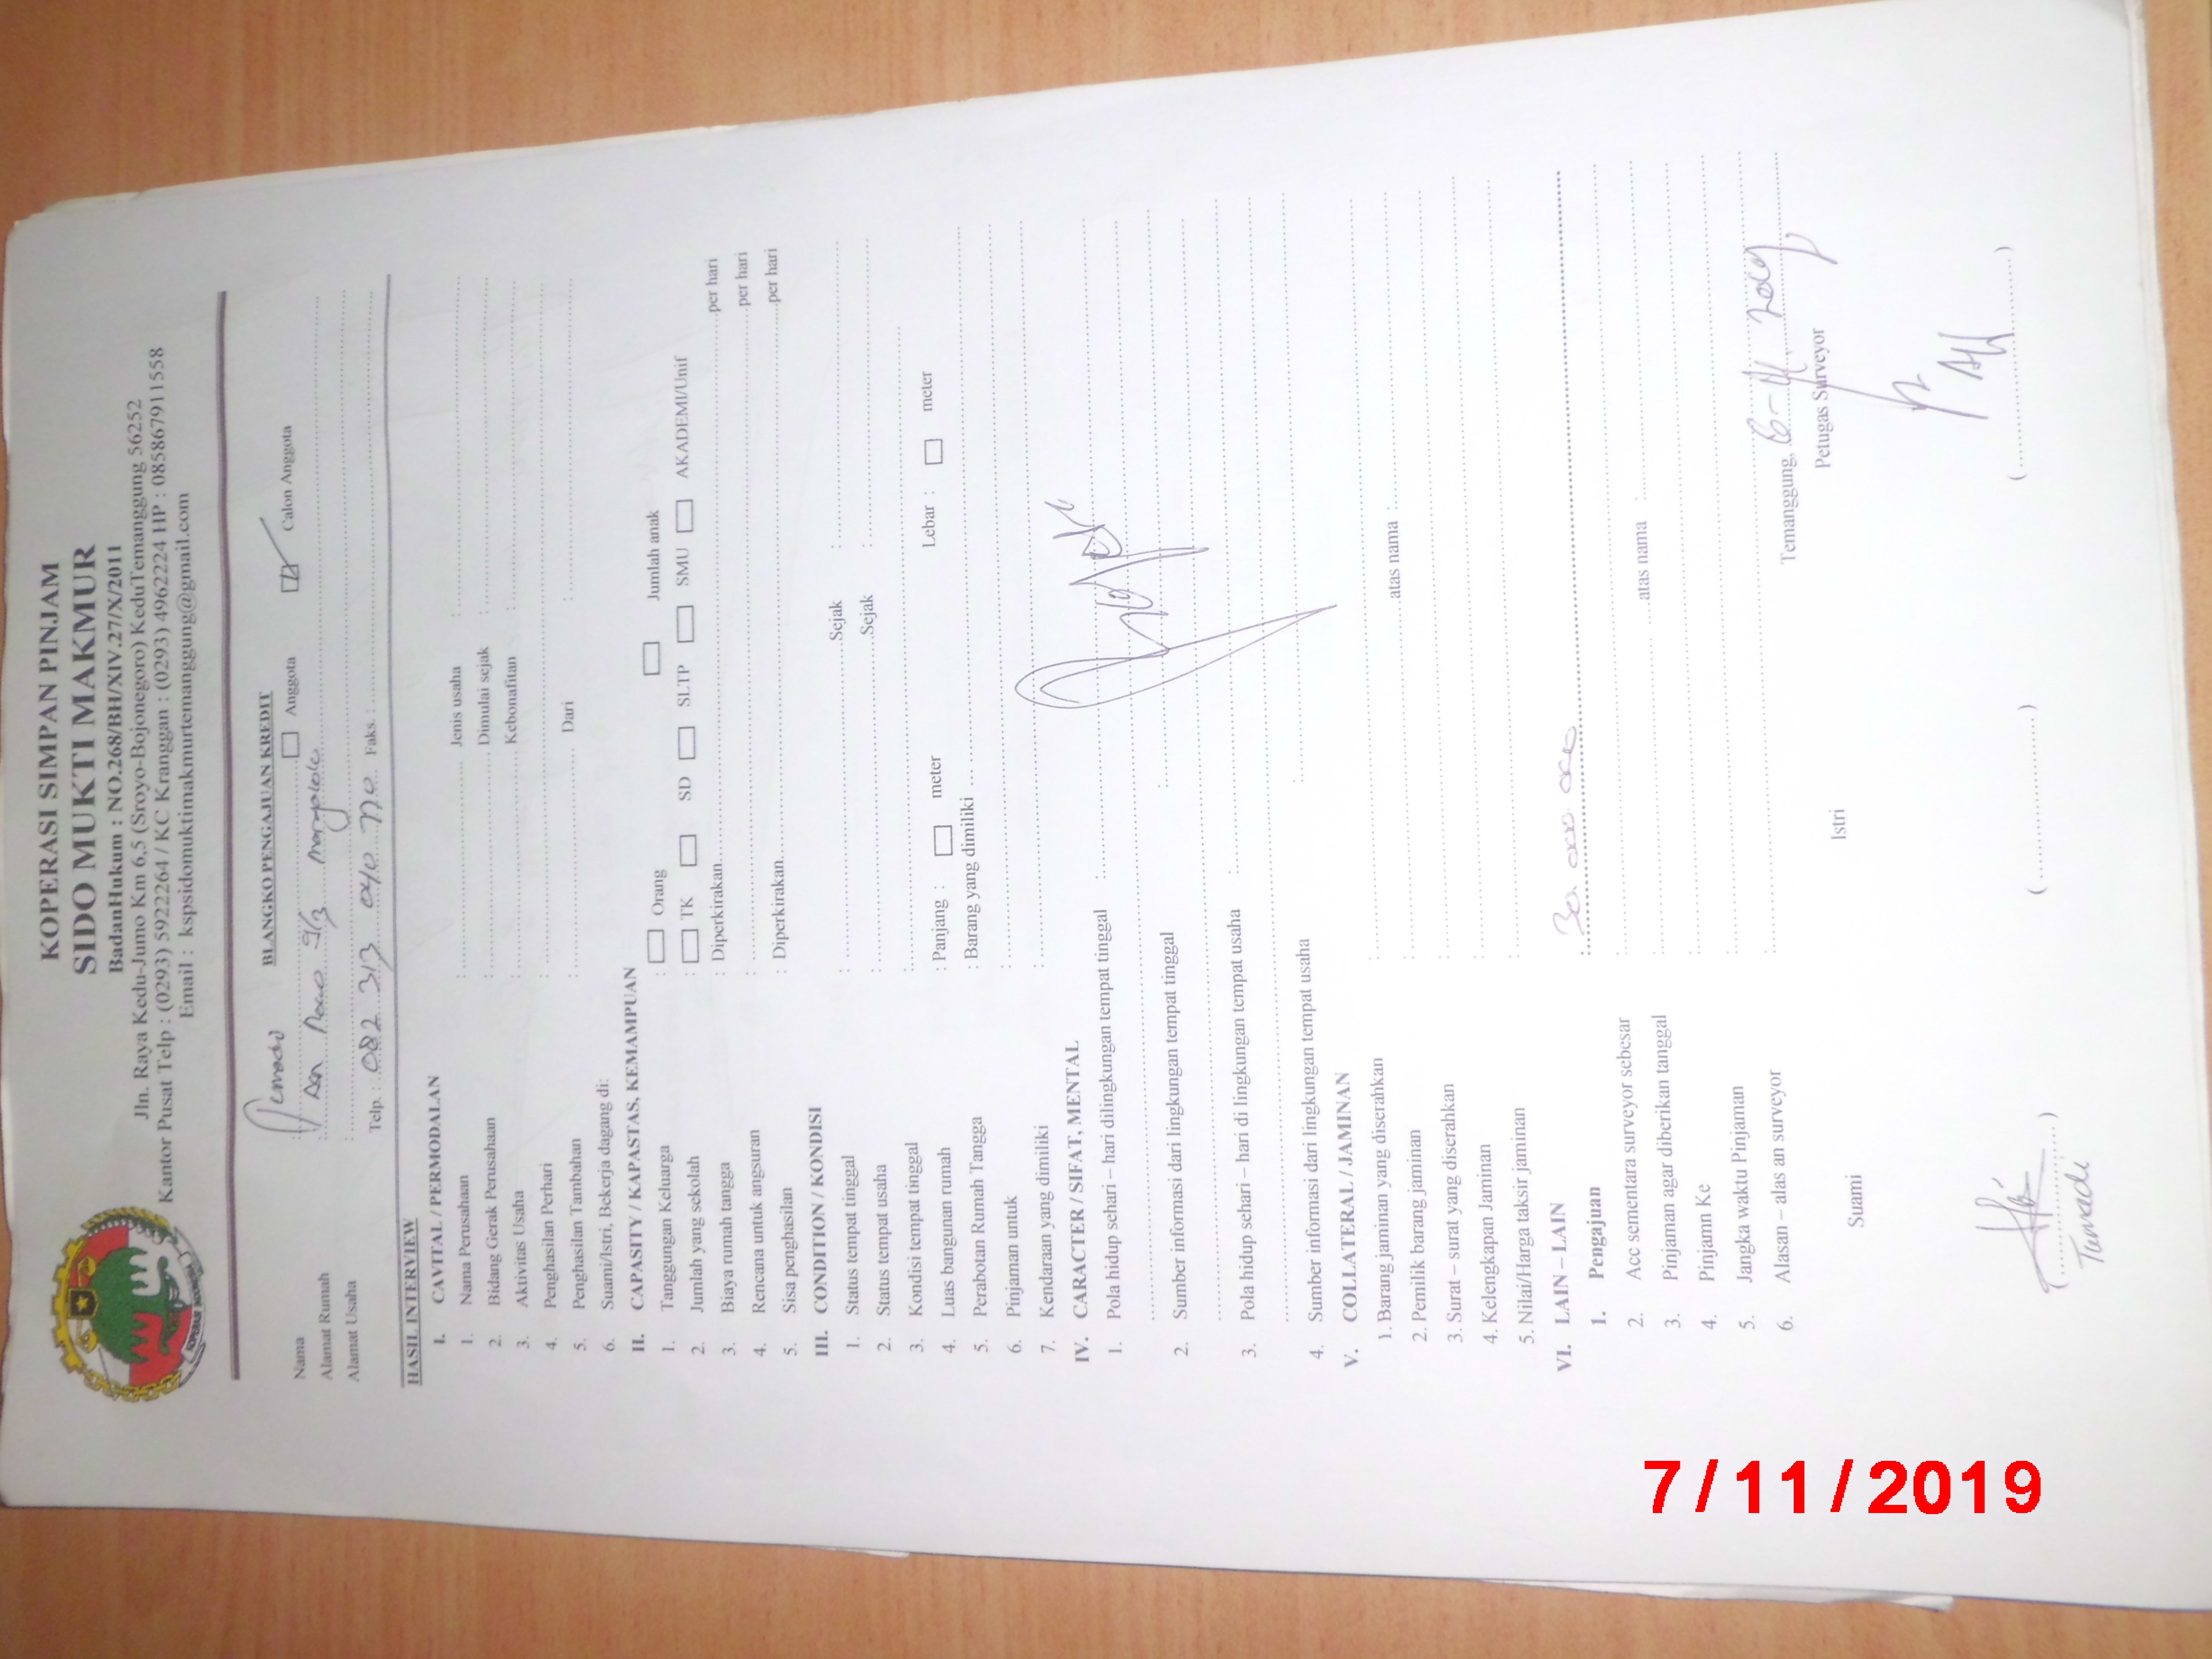 KOPERASI SIMPAN PINJAM
SIDO MUKTI MAKMUR
BadanHukum : NO.268/BH/XIV.27/X/2011
Jln. Raya Kedu-Jumo Km 6,5 (Sroyo-Bojonegoro) KeduTemanggung 56252
Kantor Pusat Telp : (0293) 5922264 / KC Kranggan : (0293) 4962224 HP : 085867911558
Email : kspsidomuktimakmurtemanggung@gmail.com
BLANGKO PENGAJUAN KREDIT
Nama : Anggota Calon Anggota
Alamat Rumah :
Alamat Usaha :
Telp. : 082 313 040 Faks. :
HASIL INTERVIEW
I. CAVITAL / PERMODALAN
1. Nama Perusahaan : Jenis usaha :
2. Bidang Gerak Perusahaan : Dimulai sejak :
3. Aktivitas Usaha : Kebonafitan :
4. Penghasilan Perhari :
5. Penghasilan Tambahan : Dari :
6. Suami/Istri, Bekerja dagang di:
II. CAPASITY / KAPASTAS, KEMAMPUAN
1. Tanggungan Keluarga : Orang Jumlah anak
2. Jumlah yang sekolah : TK SD SLTP SMU AKADEMI/Unif
3. Biaya rumah tangga : Diperkirakan per hari
4. Rencana untuk angsuran : per hari
5. Sisa penghasilan : Diperkirakan per hari
III. CONDITION / KONDISI
1. Status tempat tinggal : Sejak :
2. Status tempat usaha : Sejak :
3. Kondisi tempat tinggal :
4. Luas bangunan rumah : Panjang : meter Lebar : meter
5. Perabotan Rumah Tangga : Barang yang dimiliki
6. Pinjaman untuk :
7. Kendaraan yang dimiliki :
IV. CARACTER / SIFAT, MENTAL
1. Pola hidup sehari – hari dilingkungan tempat tinggal :
2. Sumber informasi dari lingkungan tempat tinggal :
3. Pola hidup sehari – hari di lingkungan tempat usaha :
4. Sumber informasi dari lingkungan tempat usaha :
V. COLLATERAL / JAMINAN
1. Barang jaminan yang diserahkan :
2. Pemilik barang jaminan : atas nama :
3. Surat – surat yang diserahkan :
4. Kelengkapan Jaminan :
5. Nilai/Harga taksir jaminan :
VI. LAIN – LAIN
1. Pengajuan :
2. Acc sementara surveyor sebesar :
3. Pinjaman agar diberikan tanggal : atas nama :
4. Pinjamn Ke :
5. Jangka waktu Pinjaman :
6. Alasan – alas an surveyor :
Temanggung,
Suami Istri Petugas Surveyor
7/11/2019